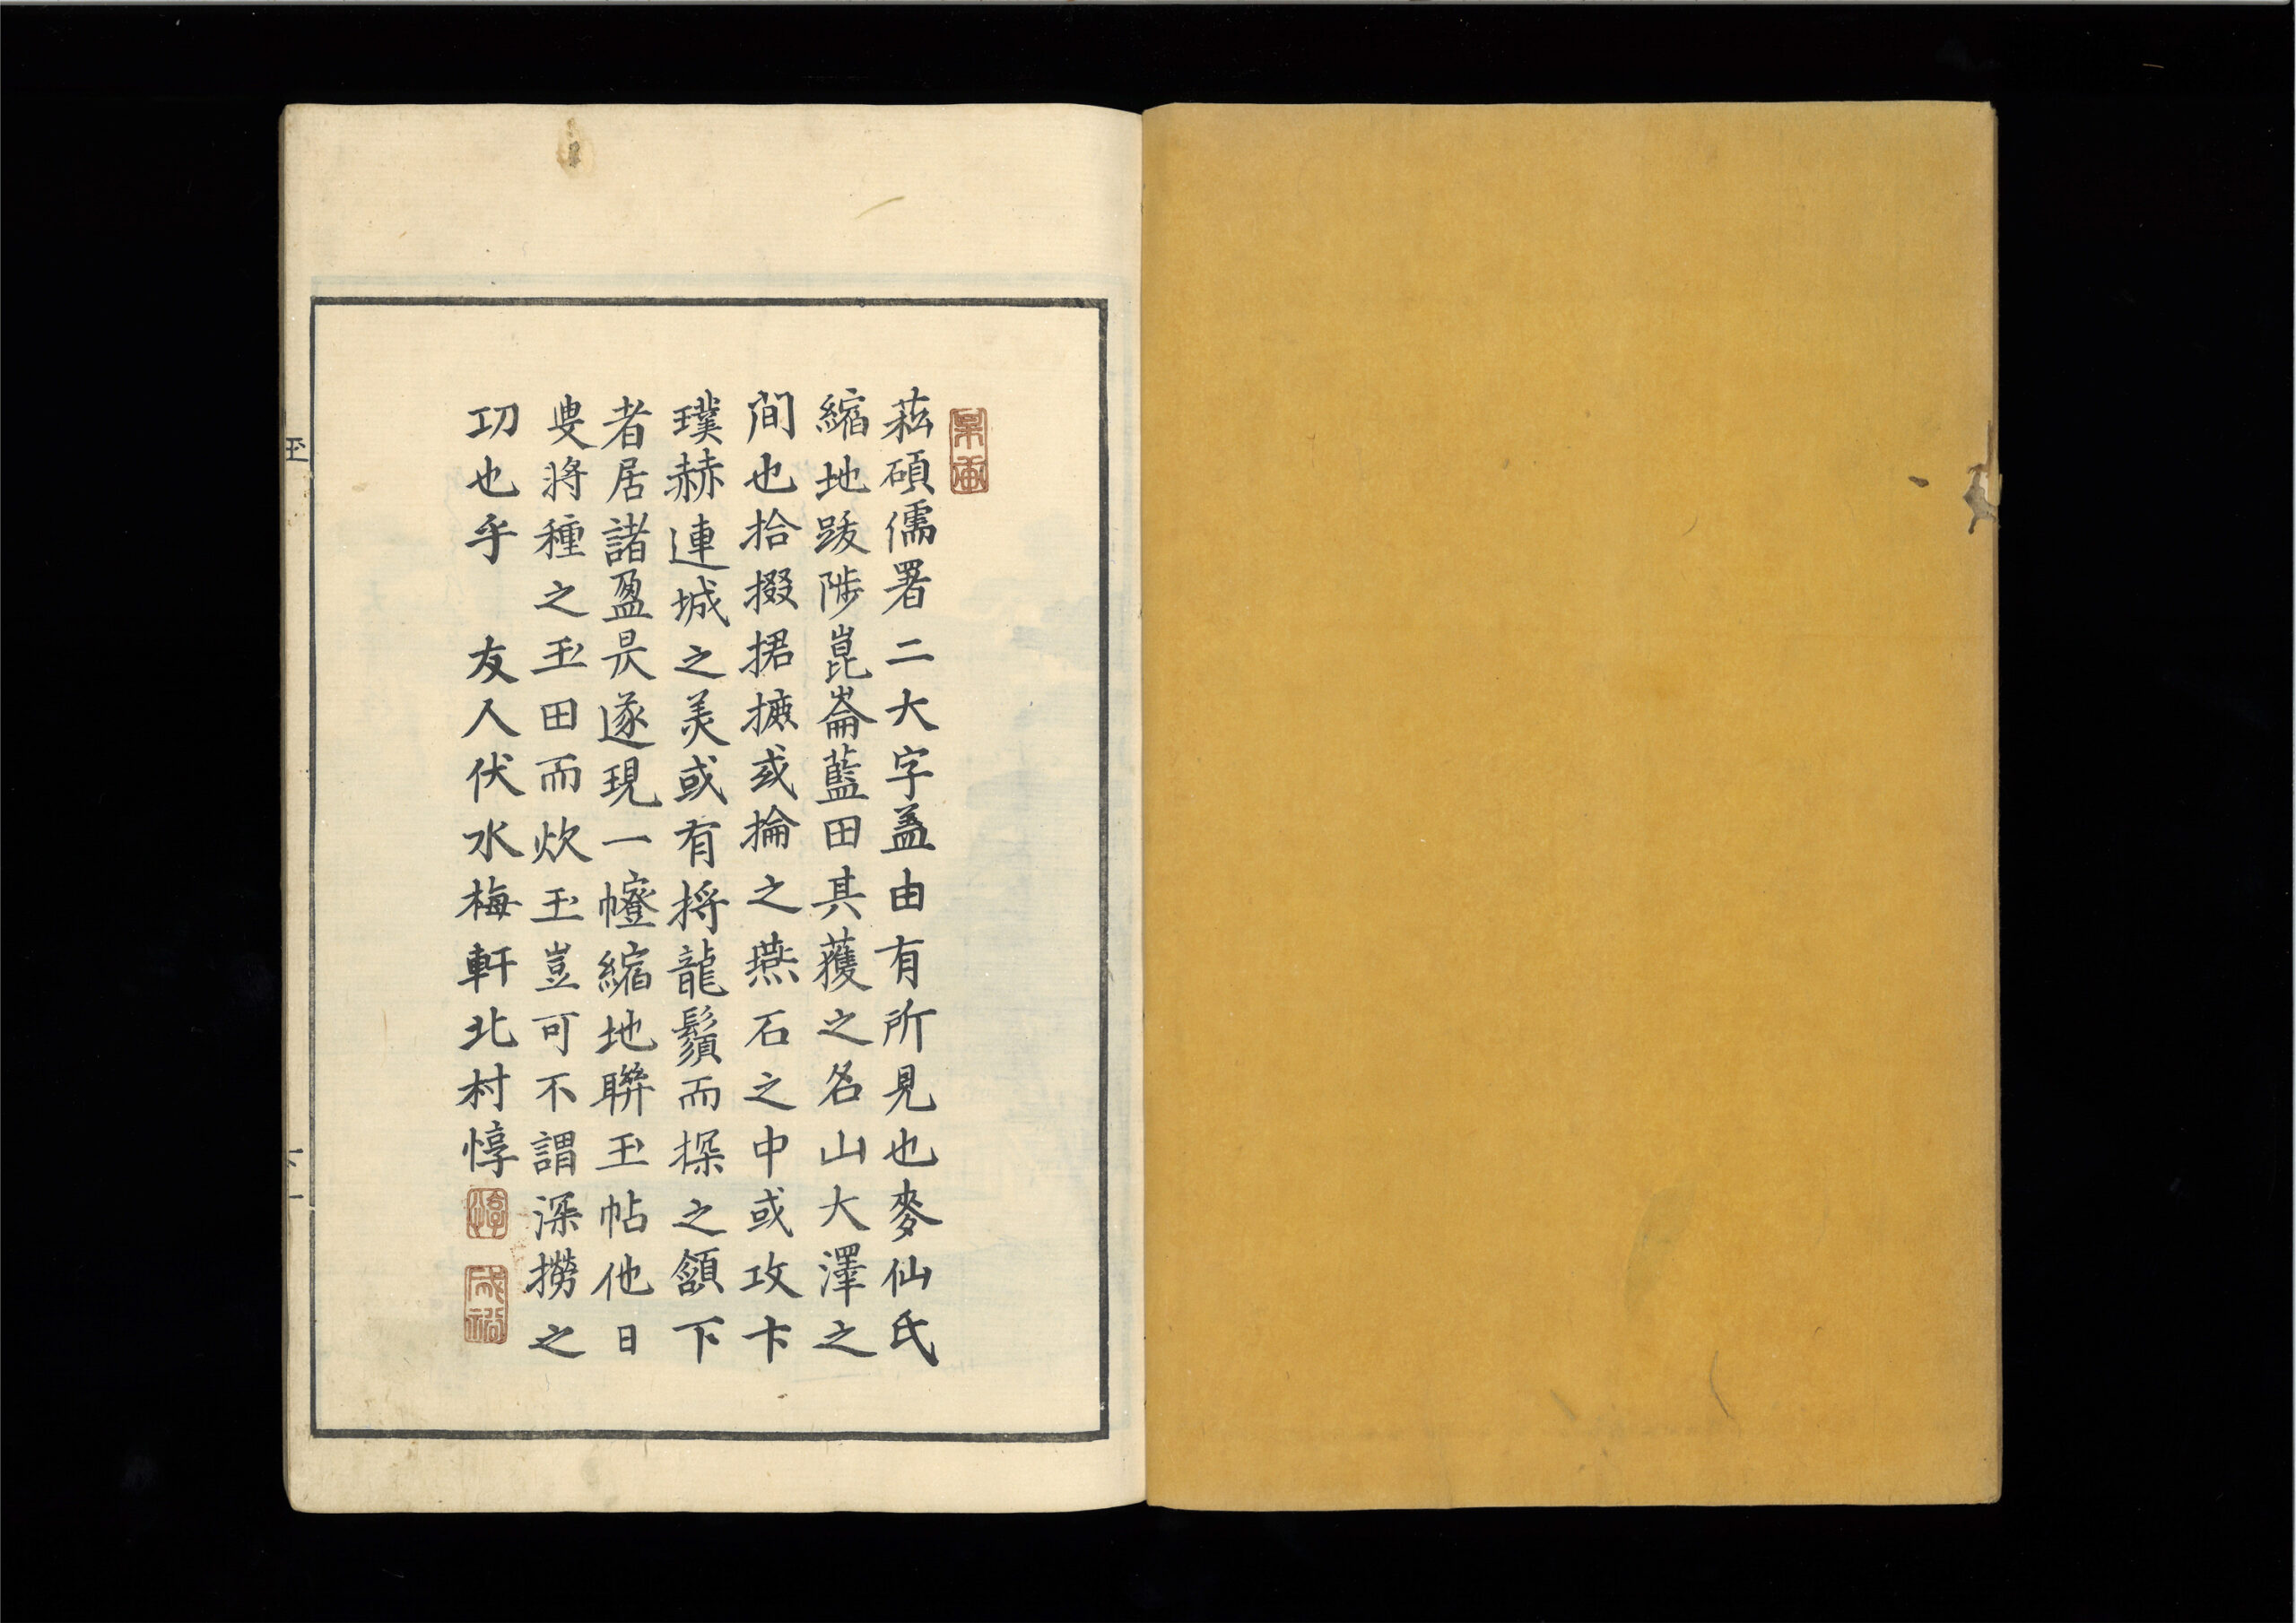 菘碩儒署二大字葢由有所見也麥仙氏
縮地跋陟崑崙藍田其獲之名山大澤之
間也拾掇捃摭或掄之燕石之中或攻卞
璞赫連城之美或有捋龍鬚而探之頷下
者居諸盈昃遂現一幢縮地聯玉帖他日
叟將種之玉田而炊玉豈可不謂深撈之
功也乎　友人伏水梅軒北村惇
惇
成裕
玉
下 一